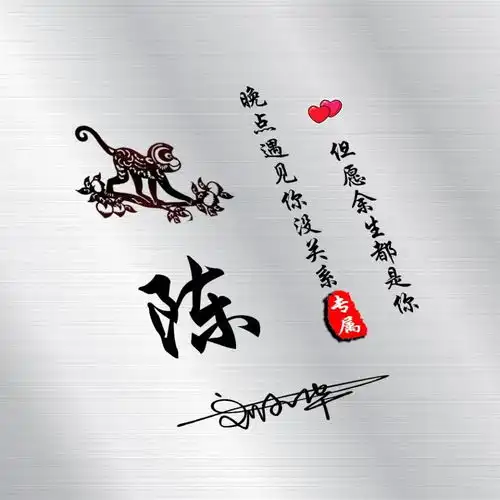 晚点遇见你没关系
但愿余生都是你
专属
陈